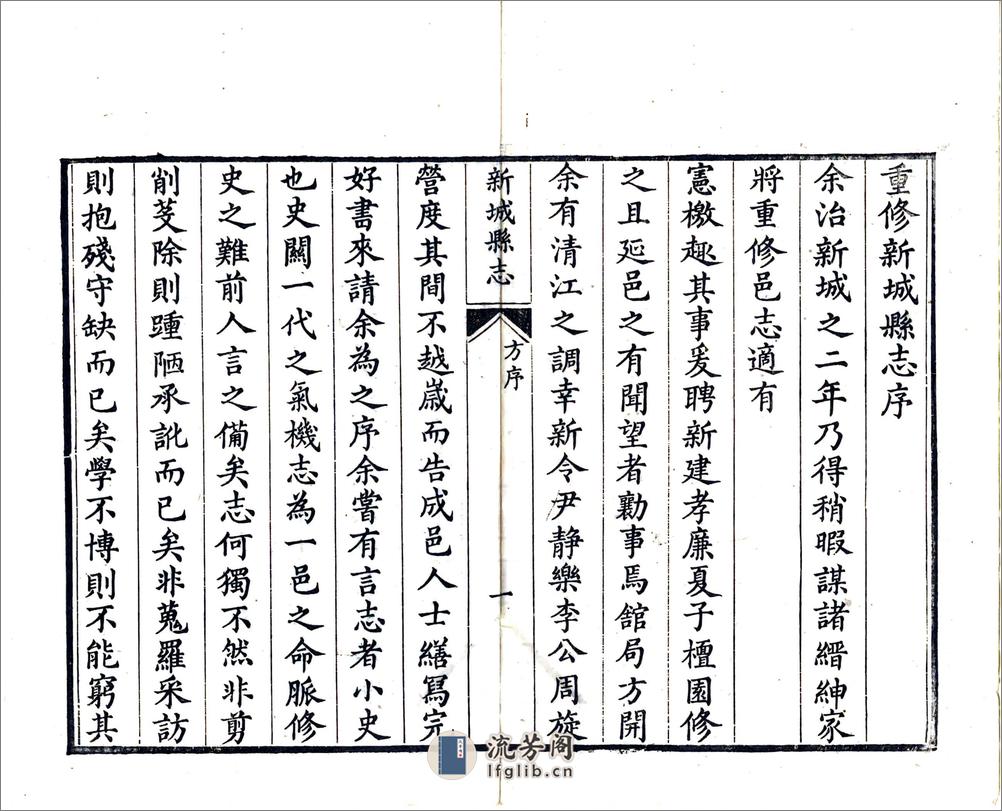 重修新城縣志序
余治新城之二年乃得稍暇謀諸縉紳家
將重修邑志適有
憲檄趣其事爰聘新建孝廉夏子檀園修
之且延邑之有聞望者勷事焉舘局方開
余有清江之調幸新令尹静樂李公周旋
新城縣志
方序
一
營度其間不越嵗而告成邑人士繕寫完
好書來請余為之序余嘗有言志者小史
也史關一代之氣機志為一邑之命脈修
史之難前人言之備矣志何獨不然非剪
削芟除則踵陋承訛而已矣非蒐羅采訪
則抱殘守缺而已矣學不博則不能窮其
流芳阁
lfglib.cn